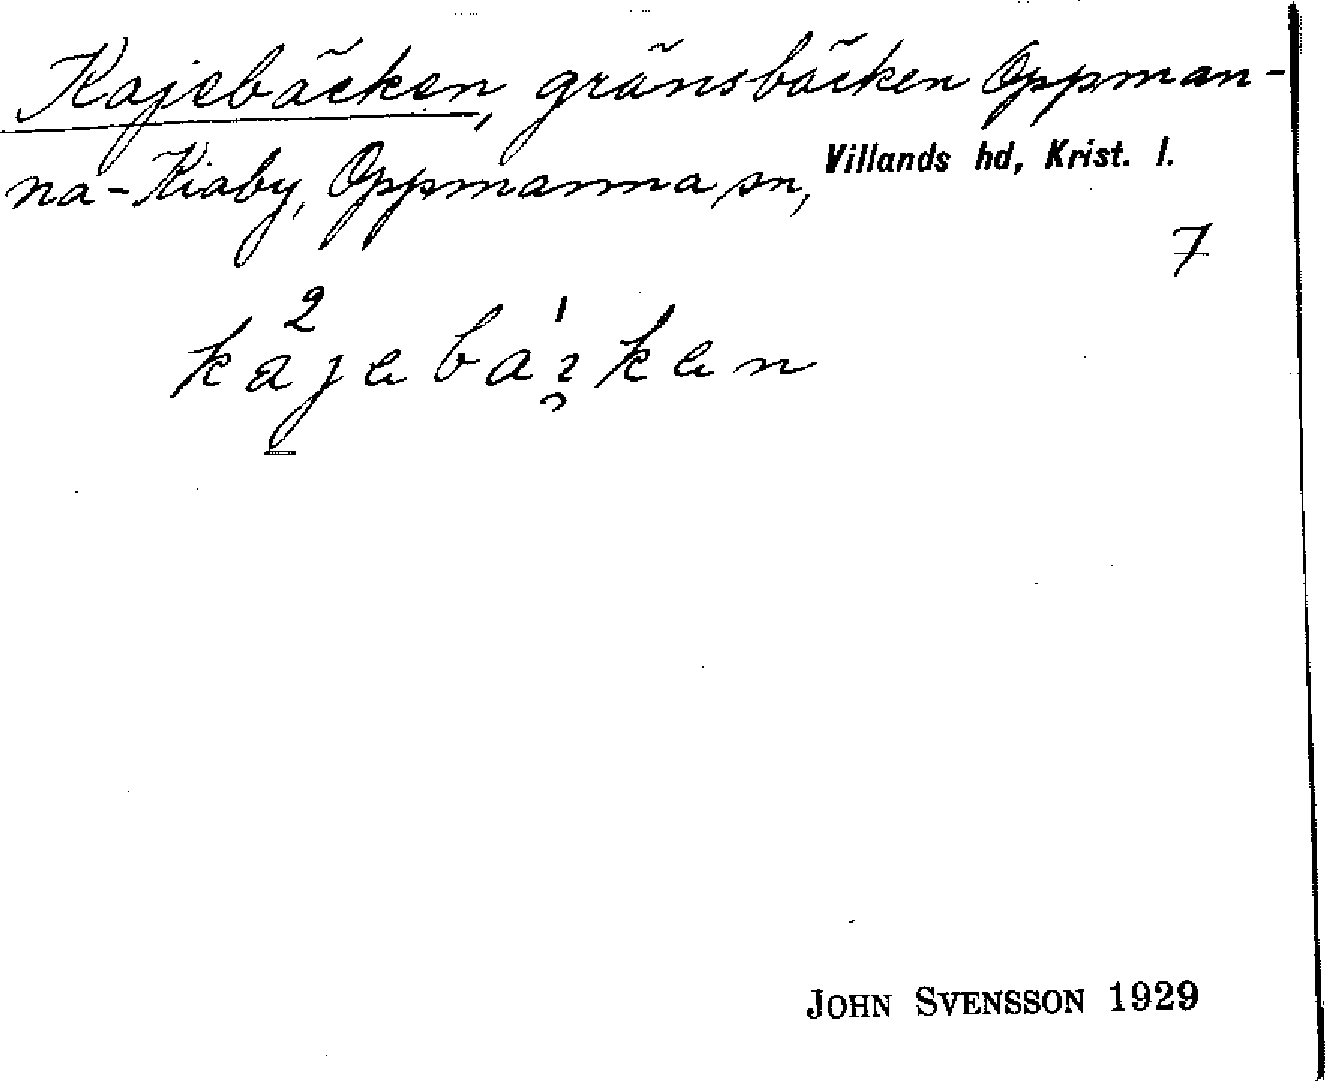 Kajebäcken, gränsbäcken Oppman-
na-Kiaby, Oppmanna sn, Villands hd, Krist. l.
7
JOHN SVENSSON 1929